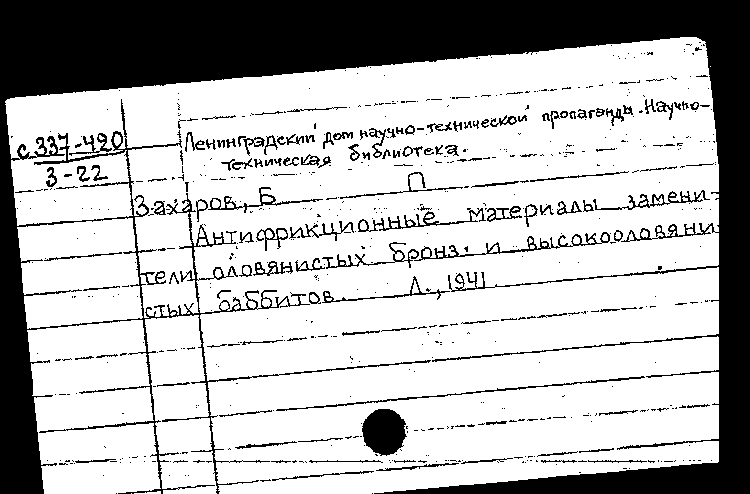 с.337-420
3-22
Ленинградский дом научно-технической пропаганды. Научно-
техническая библиотека.
Захаров, Б П
Антифрикционные материалы замени-
тели оловянистых бронз. и высокооловяни
стых баббитов. Л., 1941